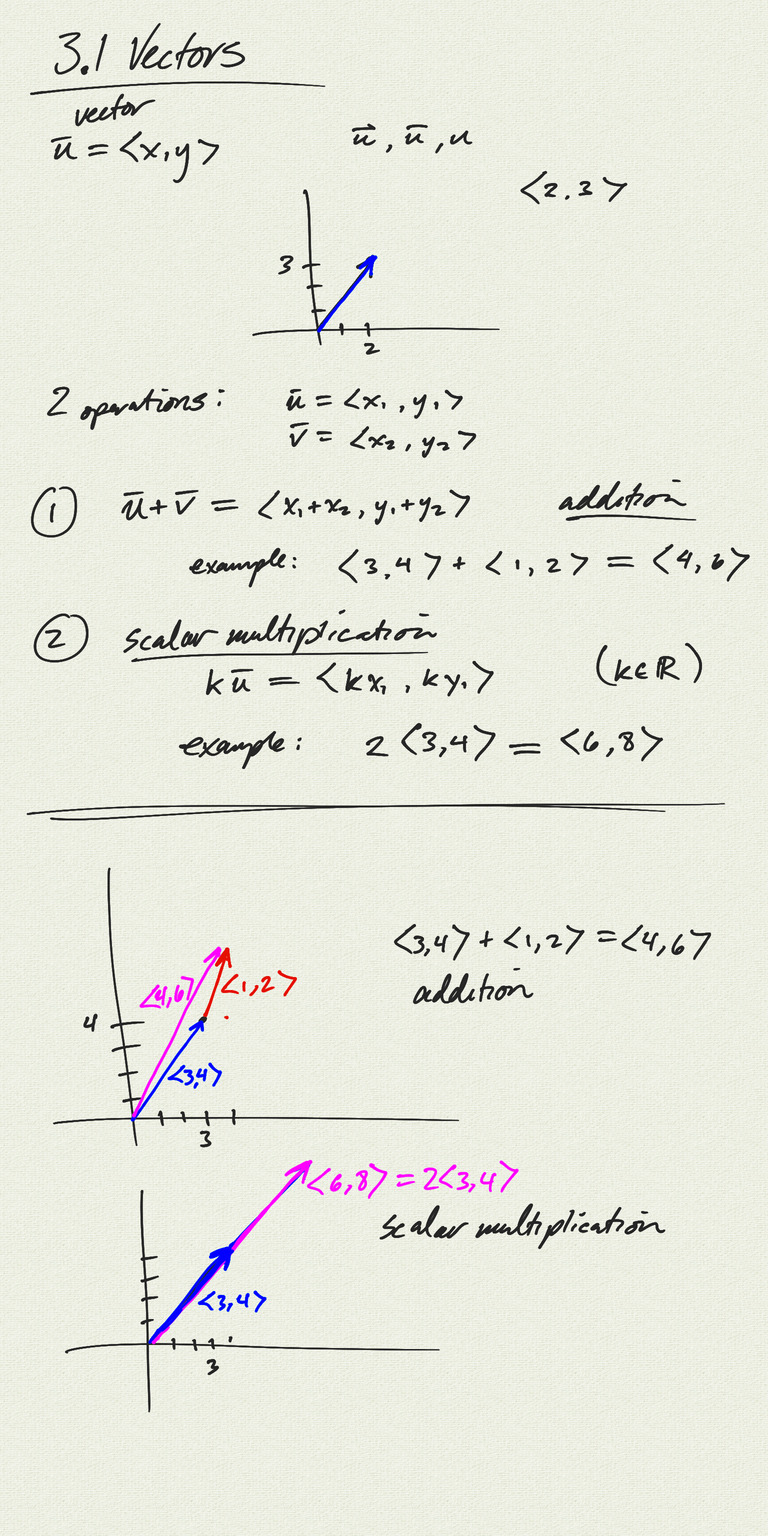 3.1 Vectors
vector
ū = <x, y>
u⃗, ū, u
<2.3>
3
2
2 operations:
ū = <x₁, y₁>
v̄ = <x₂, y₂>
① ū+v̄ = <x₁+x₂, y₁+y₂> addition
example: <3,4> + <1,2> = <4,6>
② scalar multiplication
kū = <kx₁, ky₁> (k∈ℝ)
example: 2<3,4> = <6,8>
<3,4> + <1,2> = <4,6>
addition
<4,6>
<1,2>
4
<3,4>
3
<6,8> = 2<3,4>
scalar multiplication
<3,4>
3